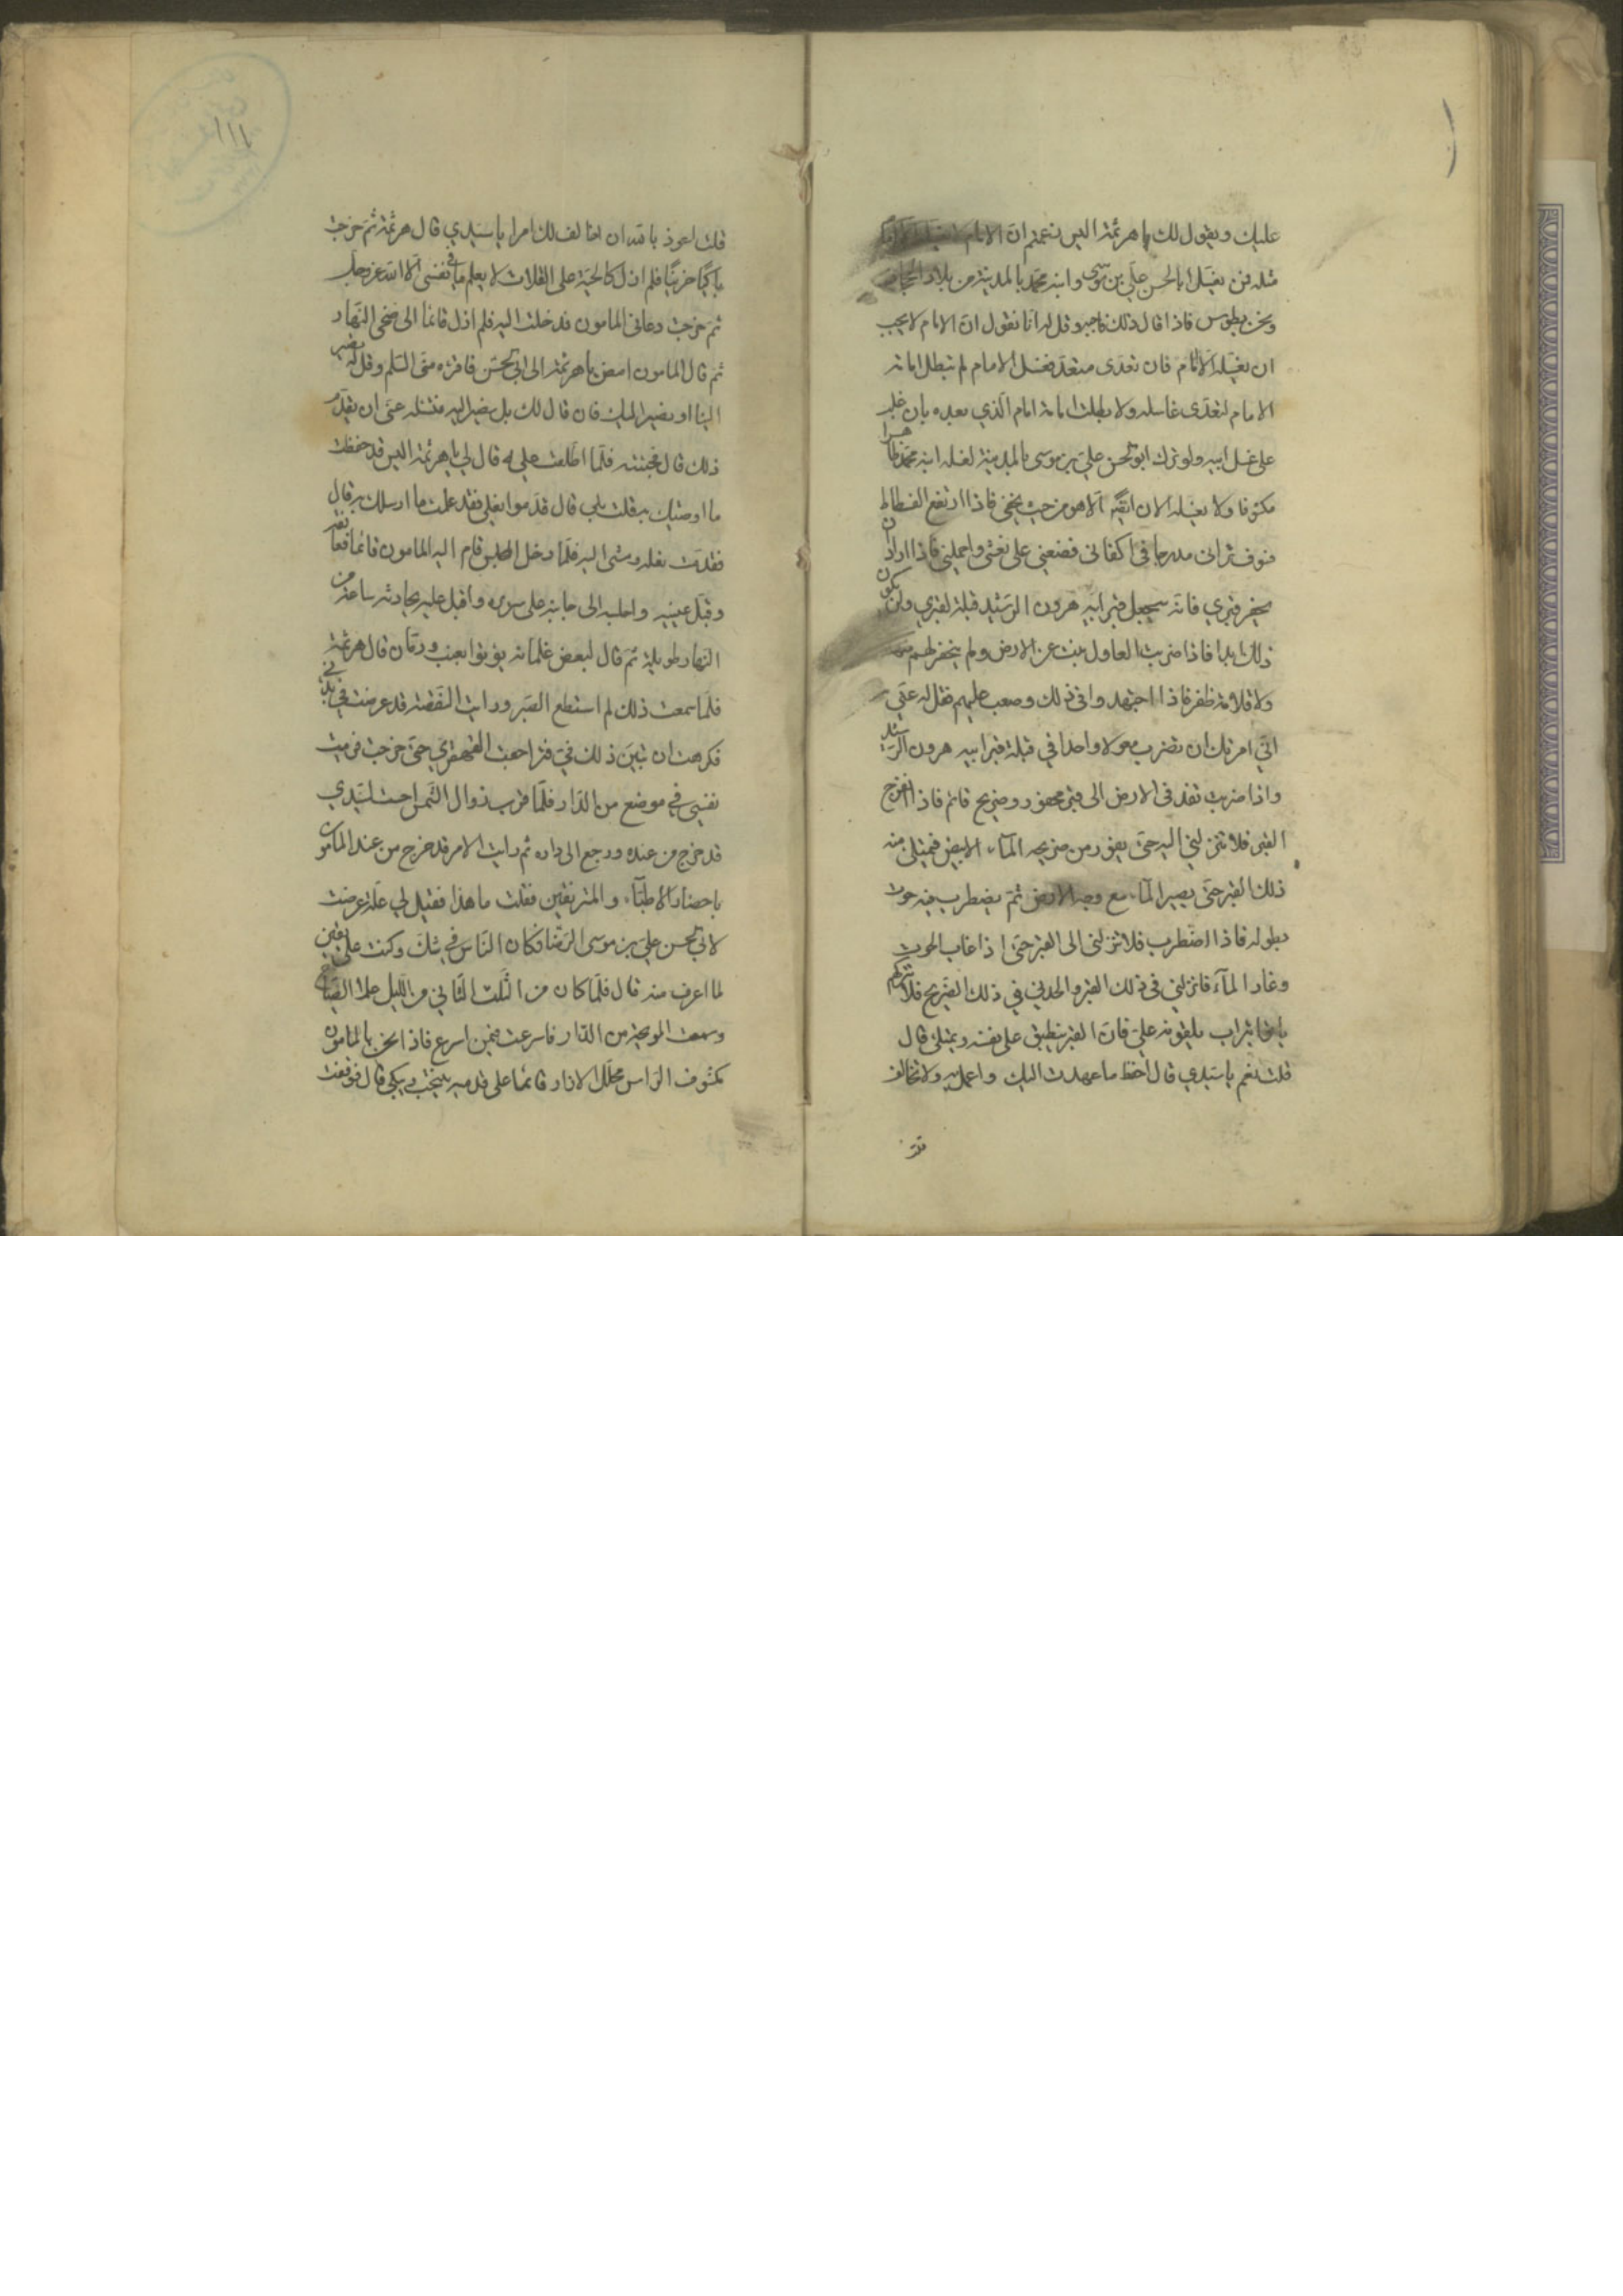 عليك ويقول لك يا هرثمة اليس زعمتم ان الامام لا يغسله الا امام
مثله فمن يغسل ابا الحسن علي بن موسى وابنه محمد بالمدينة من بلاد الحجاز
ونحن بطوس فاذا قال ذلك فاجبه وقل له انا نقول ان الامام لا يجب
ان يغسله الا امام فان تعدى متعد فغسل الامام لم تبطل امامة
الامام لتعدى غاسله ولا بطلت امامة امام الذي بعده بان غلب
على غسل ابيه ولو ترك ابو الحسن علي بن موسى بالمدينة لغسله ابنه محمد ظاهرا
مكشوفا ولا يغسله الان ايضا الا هو من حيث يخفى فاذا ارتفع الفسطاط
فسوف تراني مدرجا في اكفاني فضعني على نعشي واحملني فاذا اراد ان
يحفر قبري فانه سيجعل قبر ابيه هرون الرشيد قبلة لقبري ولن يكون
ذلك ابدا فاذا ضربت المعاول نبت عن الارض ولم يحفر لهم منها
ولا قلامة ظفر فاذا اجتهدوا في ذلك وصعب عليهم فقل له عني
اني امرتك ان تضرب معولا واحدا في قبلة قبر ابيه هرون الرشيد
واذا ضربت نفذ في الارض الى قبر محفور وضريح قائم فاذا انفرج
القبر فلا تنزلني اليه حتى يفور من ضريحه الماء الابيض فيمتلئ منه
ذلك القبر حتى يصير الماء مع وجه الارض ثم يضطرب فيه حوت
بطوله فاذا اضطرب فلا تنزلني الى القبر حتى اذا غاب الحوت
وغار الماء فانزلني في ذلك القبر والحدني في ذلك الضريح فلا تتركهم
ياتوا بتراب يلقونه علي فان القبر ينطبق على نفسه ويمتلئ قال
قلت نعم يا سيدي قال احفظ ما عهدت اليك واعمل به ولا تخالف
قلت اعوذ بالله ان اخالف لك امرا يا سيدي قال هرثمة ثم خرجت
باكيا حزينا فلم ازل كالحبة على المقلاة لا يعلم ما في نفسي الا الله عز وجل
ثم خرجت دعاني المامون فدخلت اليه فلم ازل قائما الى ضحى النهار
ثم قال المامون امض يا هرثمة الى ابي الحسن فاقرئه مني السلم وقل له تصير
الينا او نصير اليك فان قال لك بل نصير اليه فتسله عني ان يقدم
ذلك قال فجئته فلما اطلعت عليه قال لي يا هرثمة اليس قد حفظت
ما اوصيتك به قلت بلى قال قدموا نعلي فقد علمت ما ارسلك به قال
فقدمت نعله ومشى اليه فلما دخل المجلس قام اليه المامون قائما فعانقه
وقبل عينيه واجلسه الى جانبه على سريره واقبل عليه يحادثه ساعة من
النهار طويلة ثم قال لبعض غلمانه يؤتوا بعنب ورمان قال هرثمة
فلما سمعت ذلك لم استطع الصبر ورايت النفضة قد عرضت في بدني
فكرهت ان تبين ذلك في فتراجعت القهقرى حتى خرجت فرميت
نفسي في موضع من الدار فلما قرب زوال الشمس احسست بسيدي
قد خرج من عنده ورجع الى داره ثم رايت الامر قد خرج من عند المامون
باحضار الاطباء والمترفقين فقلت ما هذا فقيل لي علة عرضت
لابي الحسن علي بن موسى الرضا فكان الناس في شك وكنت على يقين
لما اعرف منه قال فلما كان من الثلث الثاني من الليل علا الصياح
وسمعت الوجبة من الدار فاسرعت فيمن اسرع فاذا نحن بالمامون
مكشوف الراس محلل الازار قائما على قدميه ينتحب ويبكي قال فوقفت